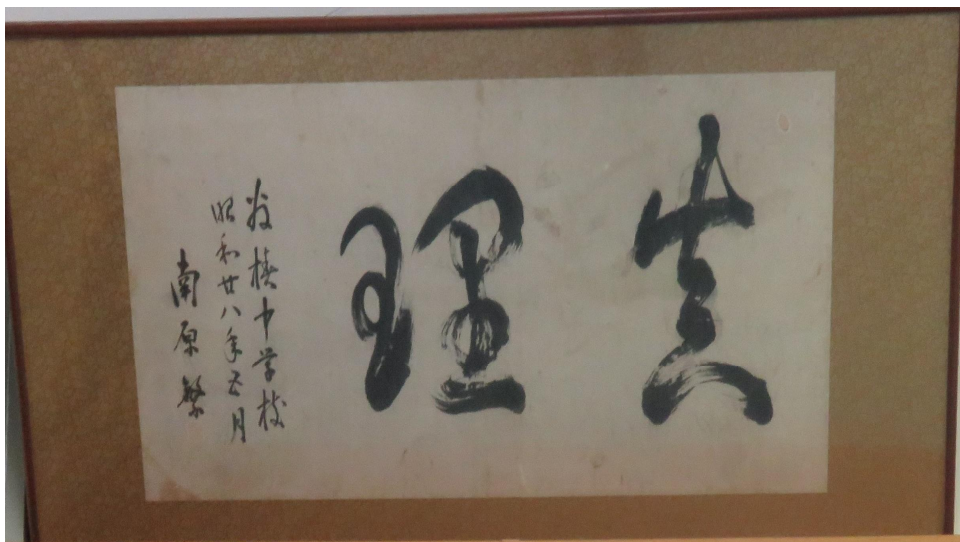 真理
中学校
昭和廿八年五月
南原繁